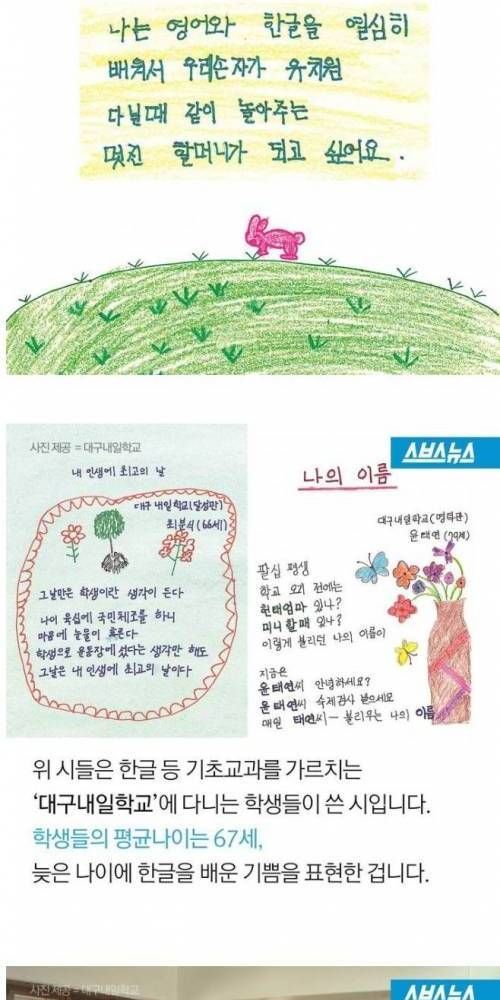 나는 영어와 한글을 열심히
배워서 우리손자가 유치원
다닐때 같이 놀아주는
멋진 할머니가 되고 싶어요.
사진 제공 = 대구내일학교
내 인생에 최고의 날
대구 내일학교(달성반)
최분식(66세)
그날만은 학생이란 생각이 든다
나이 육십에 국민체조를 하니
마음에 눈물이 흐른다
학생으로 운동장에 섰다는 생각만 해도
그날은 내 인생에 최고의 날이다
스브스뉴스
나의 이름
대구내일학교(명학관)
윤태연(79세)
팔십 평생
학교 오기 전에는
헌태엄마 있나?
피니할매 있나?
이렇게 불리던 나의 이름이
지금은
윤태연씨 안녕하세요?
윤태연씨 숙제검사 받으세요
매일 태연씨~ 불리우는 나의 이름
위 시들은 한글 등 기초교과를 가르치는
‘대구내일학교’에 다니는 학생들이 쓴 시입니다.
학생들의 평균나이는 67세,
늦은 나이에 한글을 배운 기쁨을 표현한 겁니다.
사진 제공 = 대구내일학교
스브스뉴스